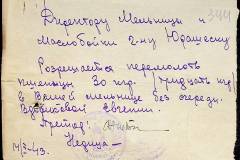 344
Директору Мельницы и
Маслобойки г-ну Юрашеску
Разрешается перемолоть
пшеницы 30 кгр. тридцать кгр
в Вашей мельнице без очереди.
Евгении.
Претор
Недица
43.